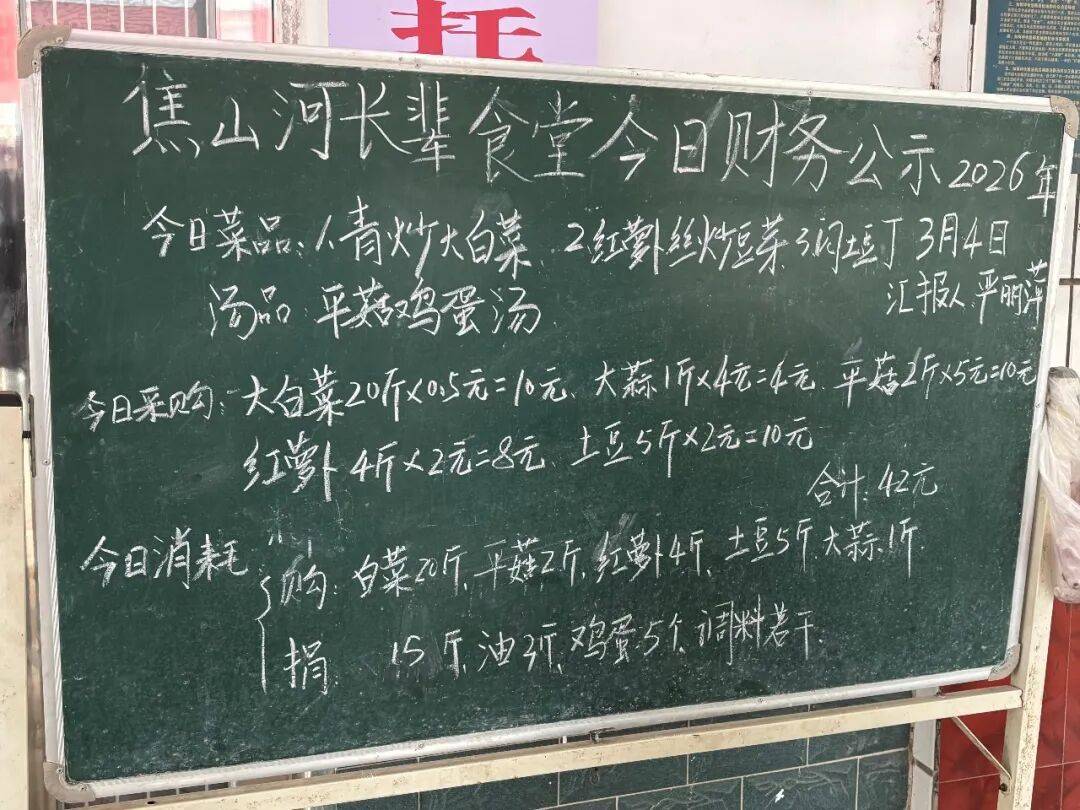 托
焦山河长辈食堂今日财务公示 2026年
今日菜品:1、青炒大白菜、2红萝卜丝炒豆芽、3闷土豆丁 3月4日
汤品:平菇鸡蛋汤、 汇报人 严丽萍
今日采购:大白菜20斤×0.5元=10元、大蒜1斤×4元=4元、平菇2斤×5元=10元
红萝卜4斤×2元=8元、土豆5斤×2元=10元
合计:42元
今日消耗 采购:白菜20斤、平菇2斤、红萝卜4斤、土豆5斤、大蒜1斤.
捐、 15斤、油3斤、鸡蛋5个、调料若干.